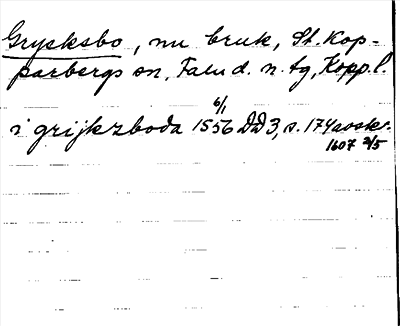 Grycksbo, nu bruk, St. Kop-
parbergs sn, Falu d. n. tg, Kopp. l.
6/1
i grijkzboda 1556 DD 3, s. 174 avskr.
1607 2/5